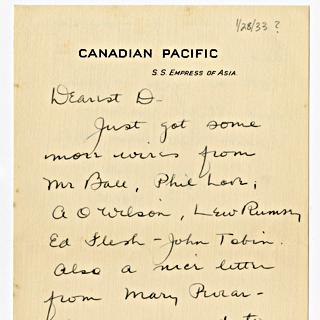 1/28/33 ?
CANADIAN PACIFIC
S.S. EMPRESS OF ASIA.
Dearest D-
Just got some
more wires from
Mr Ball, Phil Love,
A O Wilson, Lew Rumsey
Ed Flesh - John Tobin.
Also a nice letter
from Mary